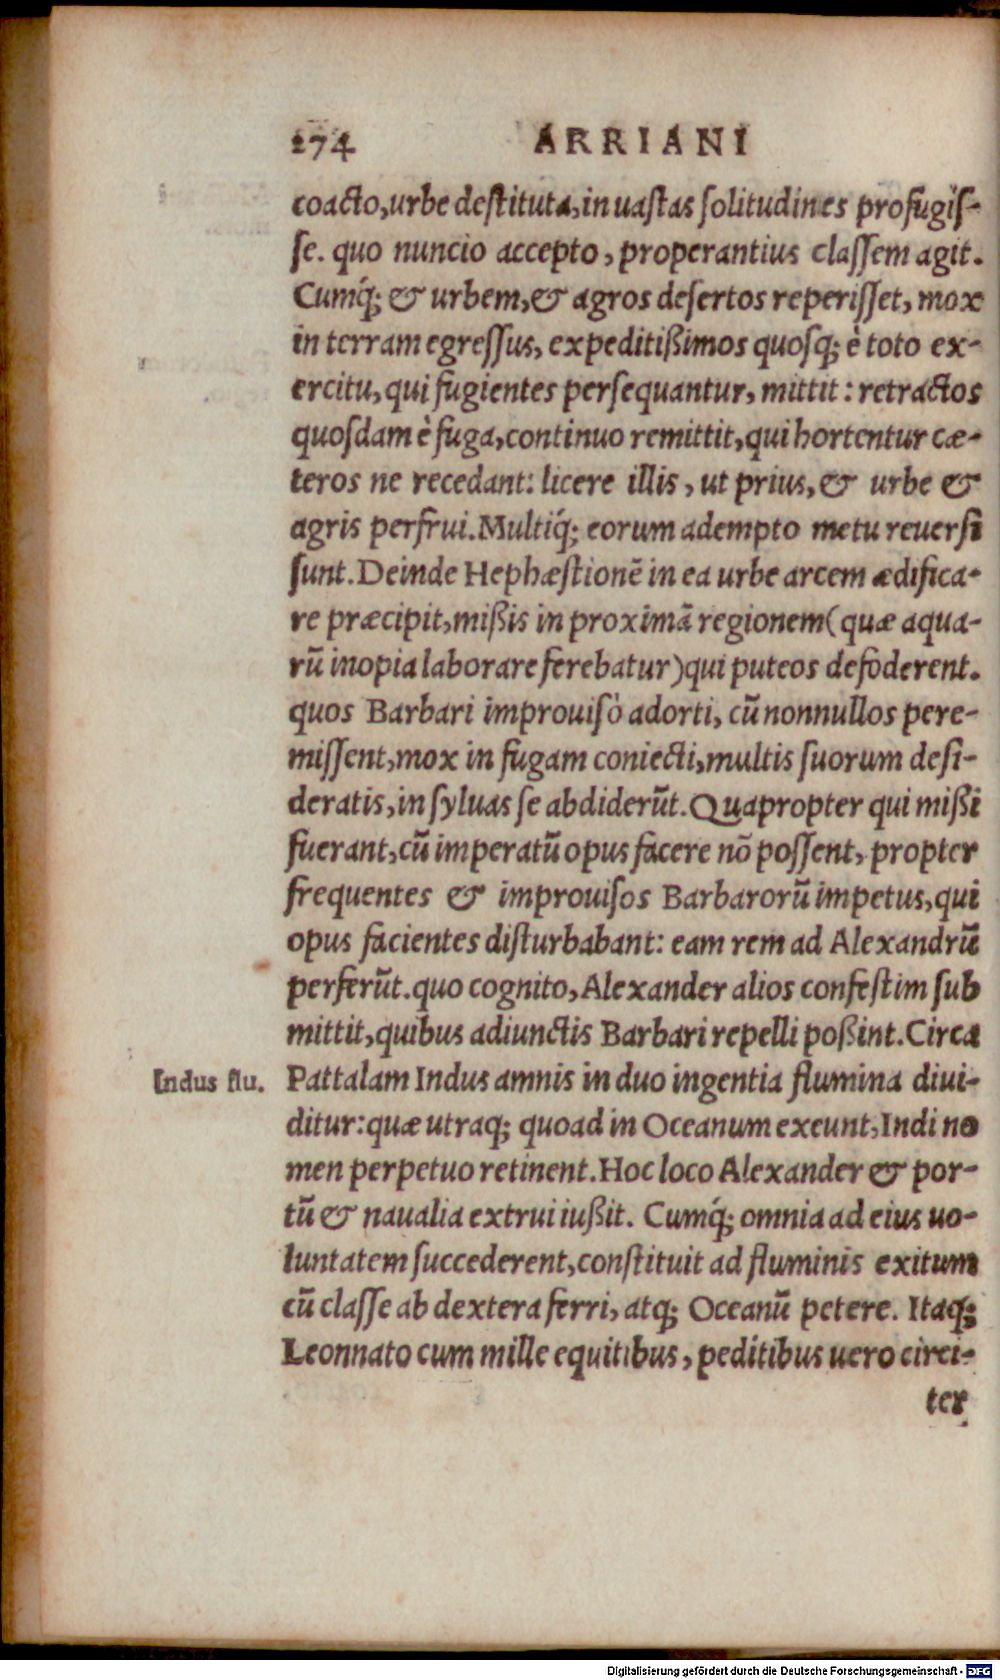 274 ARRIANI
coacto, urbe destituta, in uastas solitudines profugis-
se. quo nuncio accepto, properantius classem agit.
Cumq́; & urbem, & agros desertos reperisset, mox
in terram egressus, expeditißimos quosq; è toto ex-
ercitu, qui fugientes persequantur, mittit: retractos
quosdam è fuga, continuo remittit, qui hortentur cæ-
teros ne recedant: licere illis, ut prius, & urbe &
agris perfrui. Multiq́; eorum adempto metu reuersi
sunt. Deinde Hephæstionē in ea urbe arcem ædifica-
re præcipit, mißis in proximā regionem (quæ aqua-
rū inopia laborare ferebatur) qui puteos defoderent.
quos Barbari improuisò adorti, cū nonnullos pere-
missent, mox in fugam coniecti, multis suorum desi-
deratis, in syluas se abdiderūt. Quapropter qui mißi
fuerant, cū imperatū opus facere nō possent, propter
frequentes & improuisos Barbarorū impetus, qui
opus facientes disturbabant: eam rem ad Alexandrū
perferūt. quo cognito, Alexander alios confestim sub
mittit, quibus adiunctis Barbari repelli poßint. Circa
Indus flu. Pattalam Indus amnis in duo ingentia flumina diui-
ditur: quæ utraq; quoad in Oceanum exeunt, Indi no
men perpetuo retinent. Hoc loco Alexander & por-
tū & naualia extrui iußit. Cumq́; omnia ad eius uo-
luntatem succederent, constituit ad fluminis exitum
cū classe ab dextera ferri, atq; Oceanū petere. Itaq;
Leonnato cum mille equitibus, peditibus uero circi-
ter
Digitalisierung gefördert durch die Deutsche Forschungsgemeinschaft - DFG